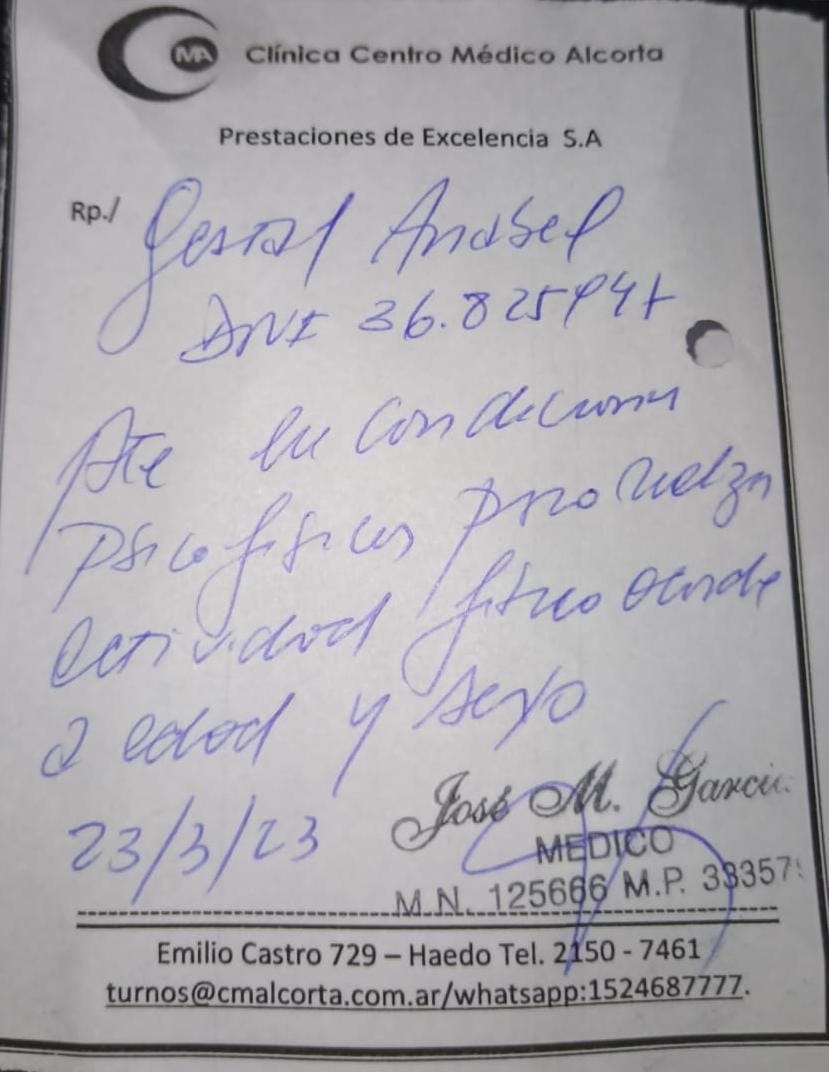 MA Clínica Centro Médico Alcorta
Prestaciones de Excelencia S.A
Rp./ Gestal Anabel
DNI 36.825941
Pte en condiciones
psicofísicas para realizar
actividad física acorde
a edad y sexo
23/3/23
José M. Garcia
MEDICO
M.N. 125666 M.P. 33357
Emilio Castro 729 – Haedo Tel. 2150 - 7461
turnos@cmalcorta.com.ar/whatsapp:1524687777.